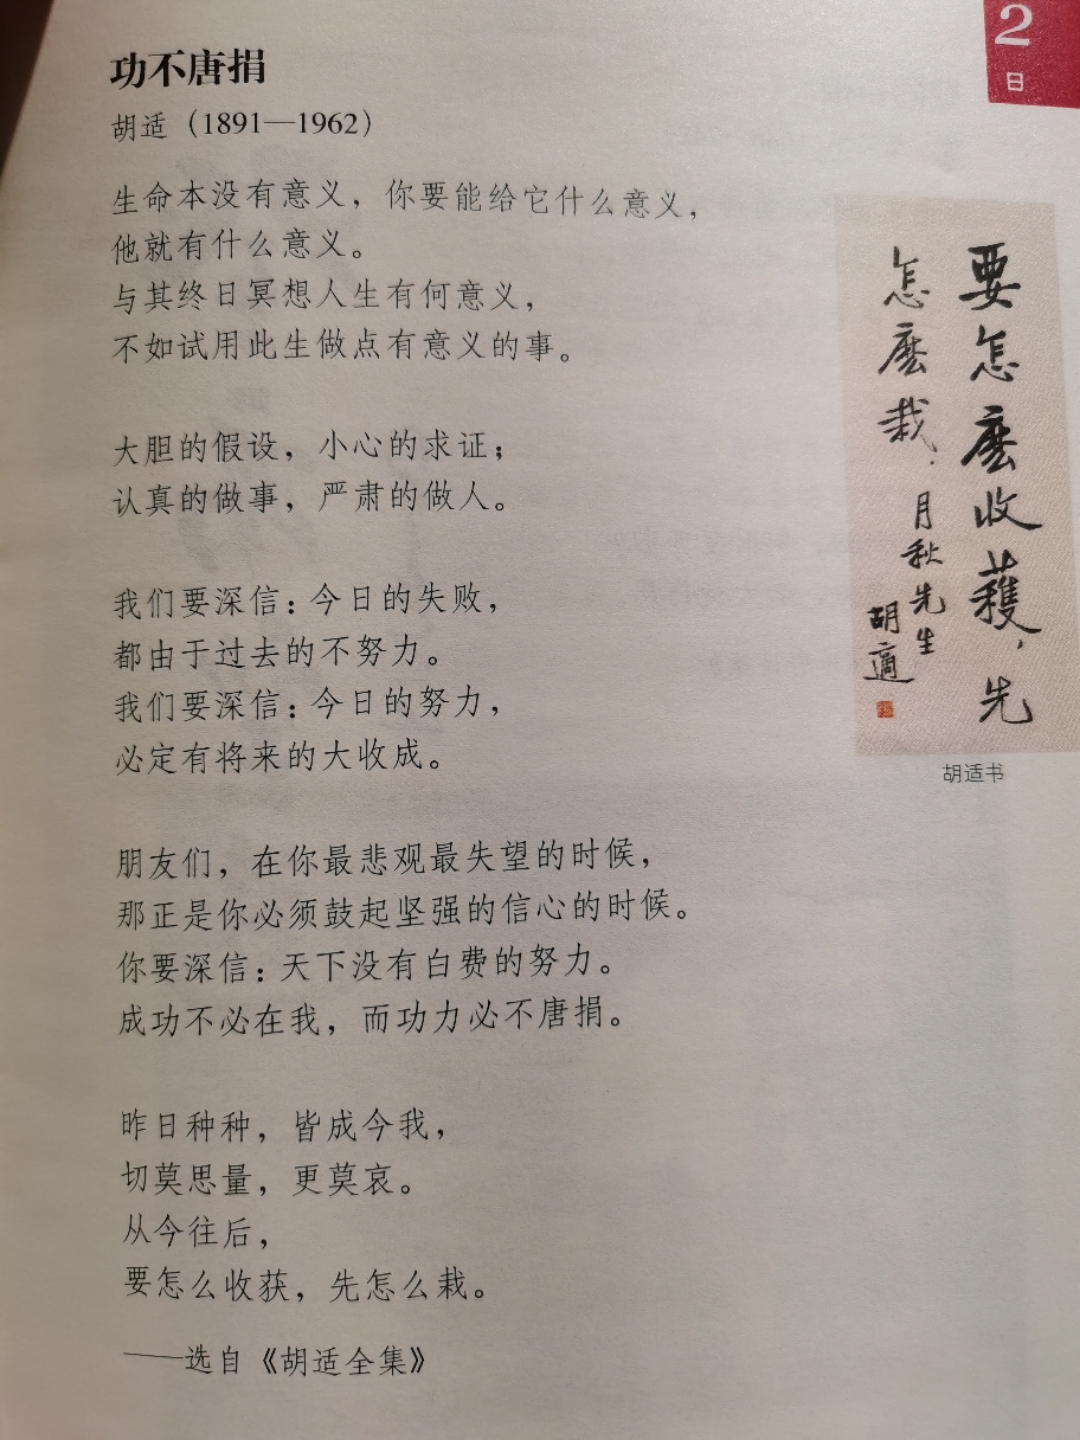 2
日
功不唐捐
胡适（1891—1962）
生命本没有意义，你要能给它什么意义，
他就有什么意义。
与其终日冥想人生有何意义，
不如试用此生做点有意义的事。
大胆的假设，小心的求证；
认真的做事，严肃的做人。
我们要深信：今日的失败，
都由于过去的不努力。
我们要深信：今日的努力，
必定有将来的大收成。
朋友们，在你最悲观最失望的时候，
那正是你必须鼓起坚强的信心的时候。
你要深信：天下没有白费的努力。
成功不必在我，而功力必不唐捐。
昨日种种，皆成今我，
切莫思量，更莫哀。
从今往后，
要怎么收获，先怎么栽。
——选自《胡适全集》
要怎麽收穫，先
怎麽栽．
月秋先生
胡適
胡适书